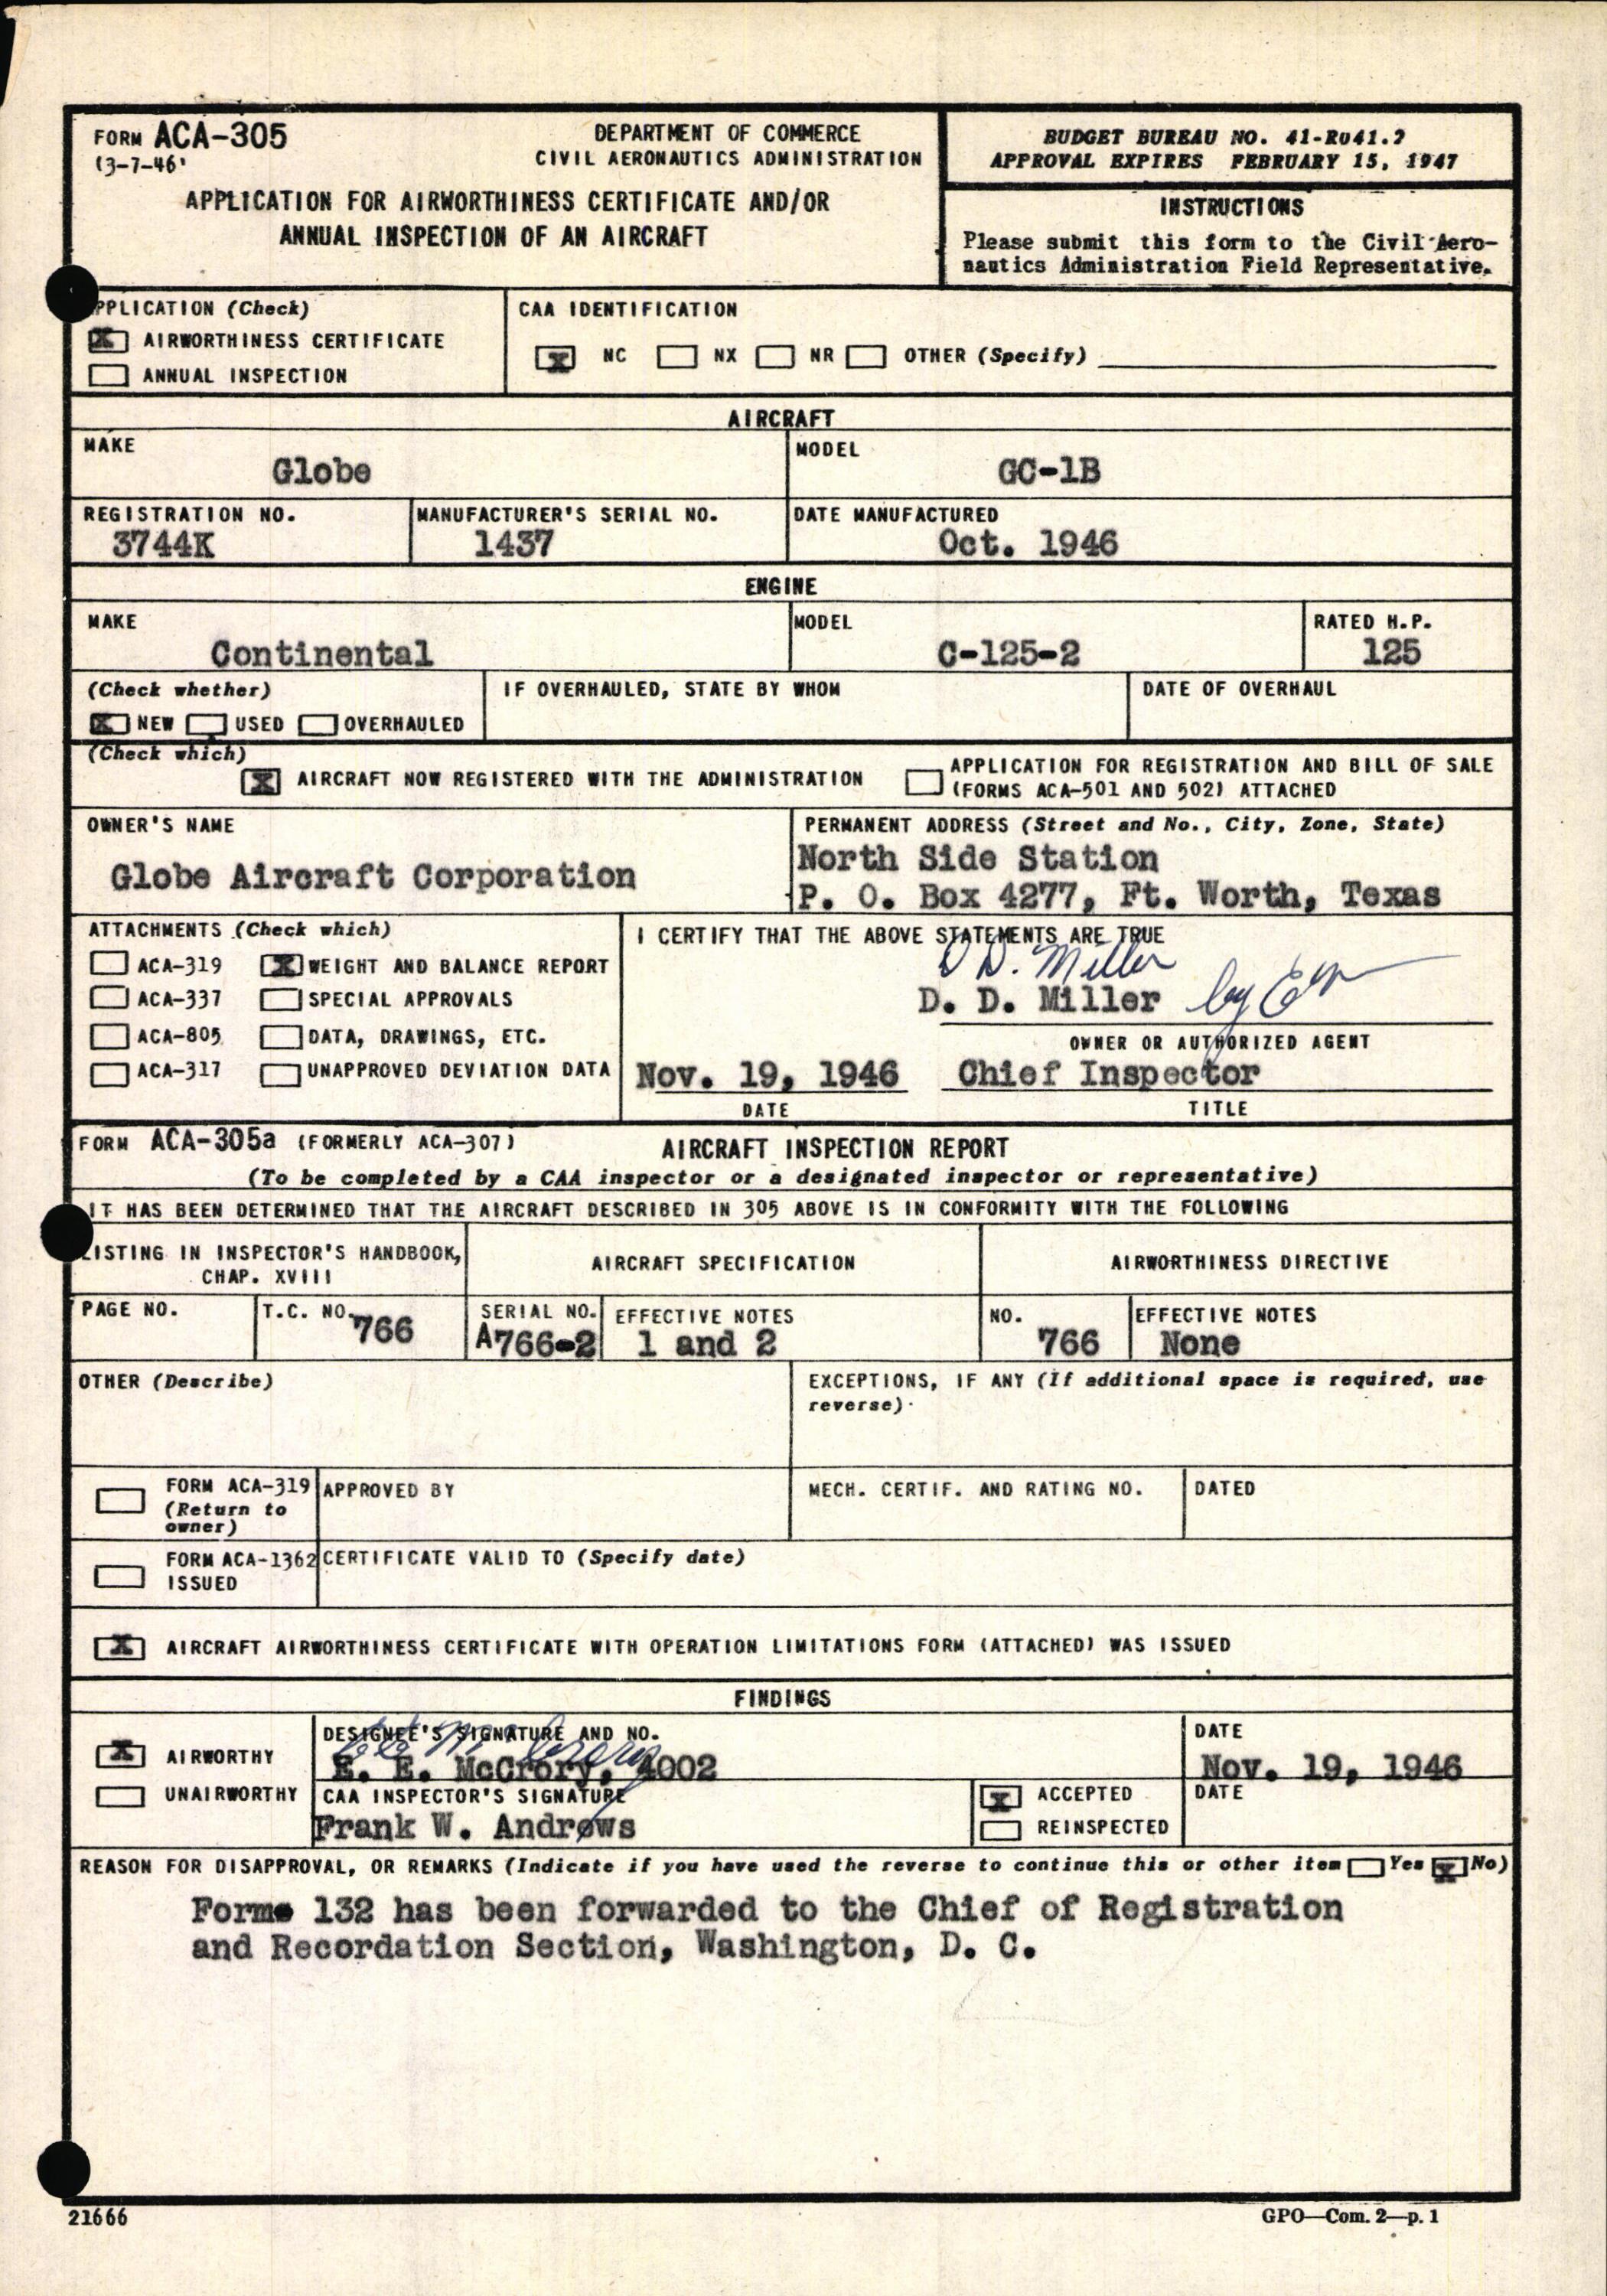 FORM ACA-305
(3-7-46)
DEPARTMENT OF COMMERCE
CIVIL AERONAUTICS ADMINISTRATION
APPLICATION FOR AIRWORTHINESS CERTIFICATE AND/OR
ANNUAL INSPECTION OF AN AIRCRAFT
BUDGET BUREAU NO. 41-R041.2
APPROVAL EXPIRES FEBRUARY 15, 1947
INSTRUCTIONS
Please submit this form to the Civil Aero-
nautics Administration Field Representative.
PPLICATION (Check)
X AIRWORTHINESS CERTIFICATE
ANNUAL INSPECTION
CAA IDENTIFICATION
X NC NX NR OTHER (Specify)
AIRCRAFT
MAKE
Globe
MODEL
GC-1B
REGISTRATION NO.
3744K
MANUFACTURER'S SERIAL NO.
1437
DATE MANUFACTURED
Oct. 1946
ENGINE
MAKE
Continental
MODEL
C-125-2
RATED H.P.
125
(Check whether)
X NEW USED OVERHAULED
IF OVERHAULED, STATE BY WHOM
DATE OF OVERHAUL
(Check which)
X AIRCRAFT NOW REGISTERED WITH THE ADMINISTRATION
APPLICATION FOR REGISTRATION AND BILL OF SALE
(FORMS ACA-501 AND 502) ATTACHED
OWNER'S NAME
Globe Aircraft Corporation
PERMANENT ADDRESS (Street and No., City, Zone, State)
North Side Station
P. O. Box 4277, Ft. Worth, Texas
ATTACHMENTS (Check which)
ACA-319 X WEIGHT AND BALANCE REPORT
ACA-337 SPECIAL APPROVALS
ACA-805 DATA, DRAWINGS, ETC.
ACA-317 UNAPPROVED DEVIATION DATA
I CERTIFY THAT THE ABOVE STATEMENTS ARE TRUE
D D. Miller
D. D. Miller by
OWNER OR AUTHORIZED AGENT
Nov. 19, 1946 Chief Inspector
DATE TITLE
FORM ACA-305a (FORMERLY ACA-307) AIRCRAFT INSPECTION REPORT
(To be completed by a CAA inspector or a designated inspector or representative)
IT HAS BEEN DETERMINED THAT THE AIRCRAFT DESCRIBED IN 305 ABOVE IS IN CONFORMITY WITH THE FOLLOWING
LISTING IN INSPECTOR'S HANDBOOK,
CHAP. XVIII
AIRCRAFT SPECIFICATION
AIRWORTHINESS DIRECTIVE
PAGE NO.
T.C. NO.
766
SERIAL NO.
A766-2
EFFECTIVE NOTES
1 and 2
NO.
766
EFFECTIVE NOTES
None
OTHER (Describe)
EXCEPTIONS, IF ANY (If additional space is required, use
reverse)
FORM ACA-319
(Return to
owner)
APPROVED BY
MECH. CERTIF. AND RATING NO.
DATED
FORM ACA-1362
ISSUED
CERTIFICATE VALID TO (Specify date)
X AIRCRAFT AIRWORTHINESS CERTIFICATE WITH OPERATION LIMITATIONS FORM (ATTACHED) WAS ISSUED
FINDINGS
X AIRWORTHY
UNAIRWORTHY
DESIGNEE'S SIGNATURE AND NO.
E. E. McCrory, 4002
DATE
Nov. 19, 1946
CAA INSPECTOR'S SIGNATURE
Frank W. Andrews
X ACCEPTED
REINSPECTED
DATE
REASON FOR DISAPPROVAL, OR REMARKS (Indicate if you have used the reverse to continue this or other item Yes X No)
Forms 132 has been forwarded to the Chief of Registration
and Recordation Section, Washington, D. C.
21666
GPO—Com. 2—p. 1